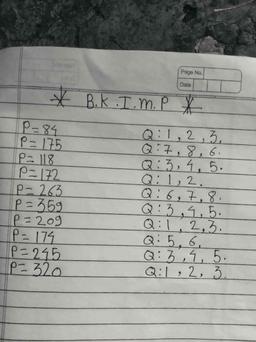 Page No.
Date
B.k.I.m.P
P=84 Q:1,2,3,
P=175 Q:7,8,6.
P=118 Q:3,4,5.
P=172 Q:1,2.
P=263 Q:6,7,8.
P=359 Q:3,4,5.
P=209 Q:1,2,3.
P=174 Q:5,6,
P=245 Q:3,4,5.
P=320 Q:1,2,3